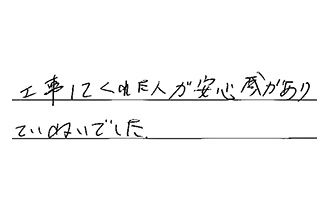 工事してくれた人が安心感があり
ていねいでした